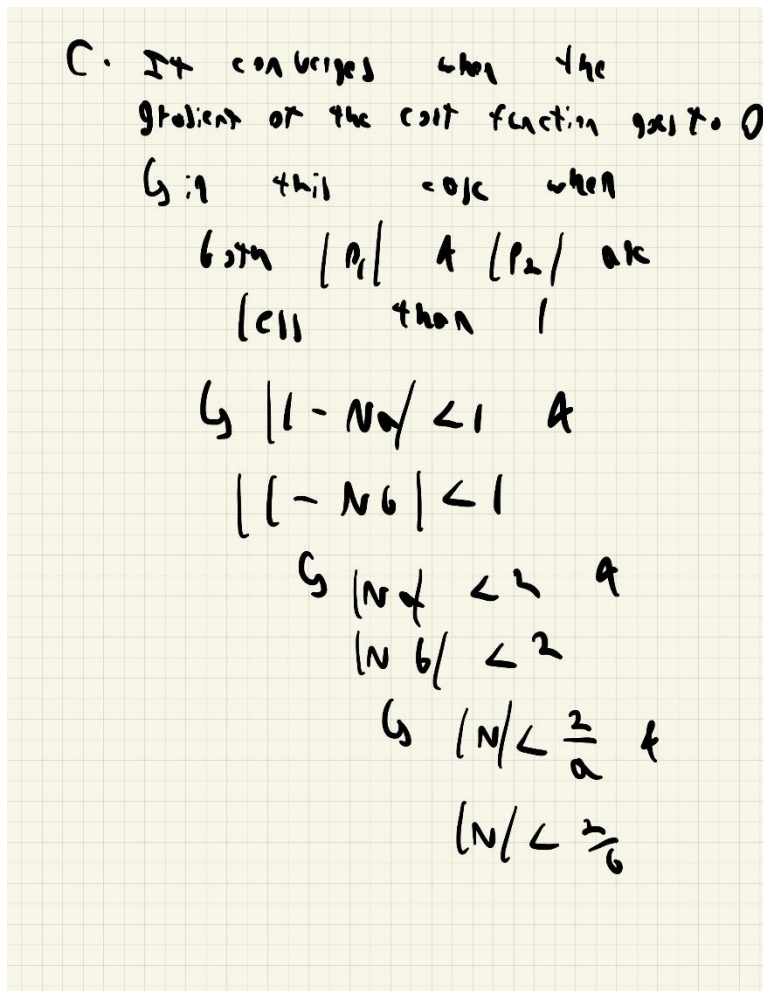 C. It converges when the
gradient of the cost function goes to 0
↳ in this case when
both |ρ₁| & |ρ₂| are
less than 1
↳ |1 - Na| < 1 &
|1 - Nb| < 1
↳ |Na| < 2 &
|Nb| < 2
↳ |N| < 2/a &
|N| < 2/b